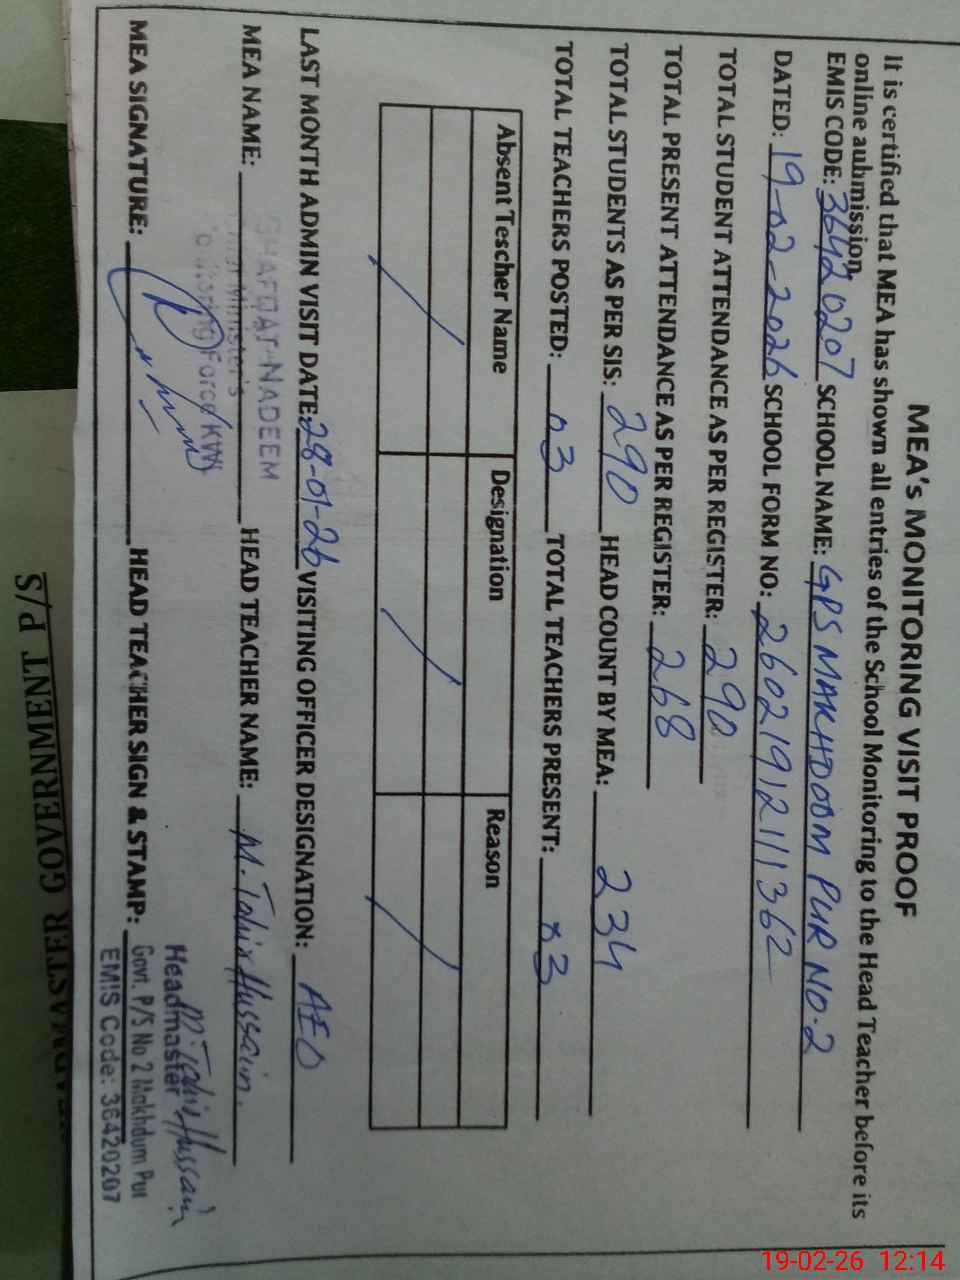 MEA's MONITORING VISIT PROOF
It is certified that MEA has shown all entries of the School Monitoring to the Head Teacher before its
online aubmission.
EMIS CODE: 36420207 SCHOOL NAME: GPS MAKHDOOM PUR NO.2
DATED: 19-02-2026 SCHOOL FORM NO: 26021912111362
TOTAL STUDENT ATTENDANCE AS PER REGISTER: 290
TOTAL PRESENT ATTENDANCE AS PER REGISTER: 268
TOTAL STUDENTS AS PER SIS: 290 HEAD COUNT BY MEA: 234
TOTAL TEACHERS POSTED: 03 TOTAL TEACHERS PRESENT: 03
Absent Tescher Name Designation Reason
LAST MONTH ADMIN VISIT DATE: 28-01-26 VISITING OFFICER DESIGNATION: AEO
MEA NAME: SHAFQAT NADEEM HEAD TEACHER NAME: M. Tahir Hussain.
Chief Minister's
Monitoring Force KWL
MEA SIGNATURE: HEAD TEACHER SIGN & STAMP:
M. Tahir Hussain
Headmaster
Govt. P/S No 2 Makhdum Pur
EMIS Code: 36420207
S/P GOVERNMENT
19-02-26 12:14